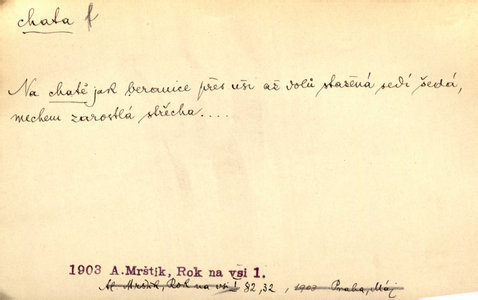 chata f
Na chatě jak beranice přes uši až dolů stažená sedí šedá,
mechem zarostlá střecha....
1903 A.Mrštík, Rok na vsi 1.
A. Mrštík, Rok na vsi I 82,32, 1903 Praha, Máj